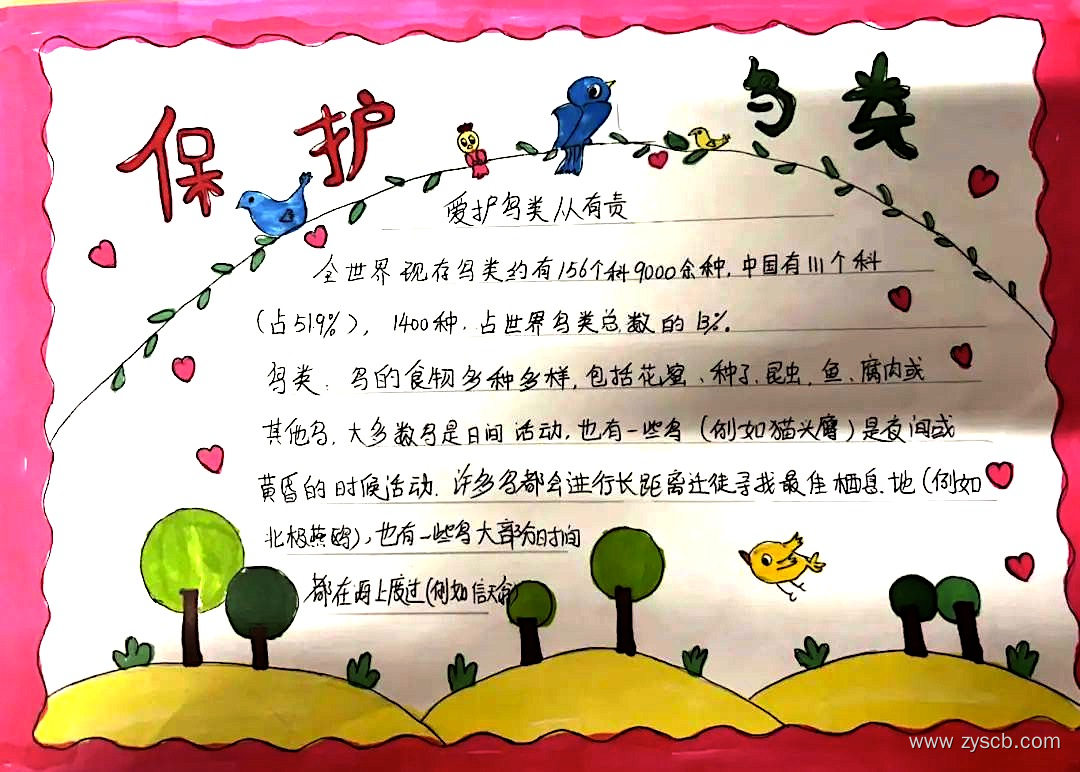 保护鸟类
爱护鸟类从有责
全世界现存鸟类约有156个科9000余种,中国有111个科
(占519%), 1400种.占世界鸟类总数的13%。
鸟类:鸟的食物多种多样,包括花蜜、种子、昆虫、鱼、腐肉或
其他鸟.大多数鸟是日间活动,也有一些鸟(例如猫头鹰)是夜间或
黄昏的时候活动.许多鸟都会进行长距离迁徙寻找最佳栖息地(例如
北极燕鸥),也有一些鸟大部分时间
都在海上度过(例如信天翁)
www.zyscb.com